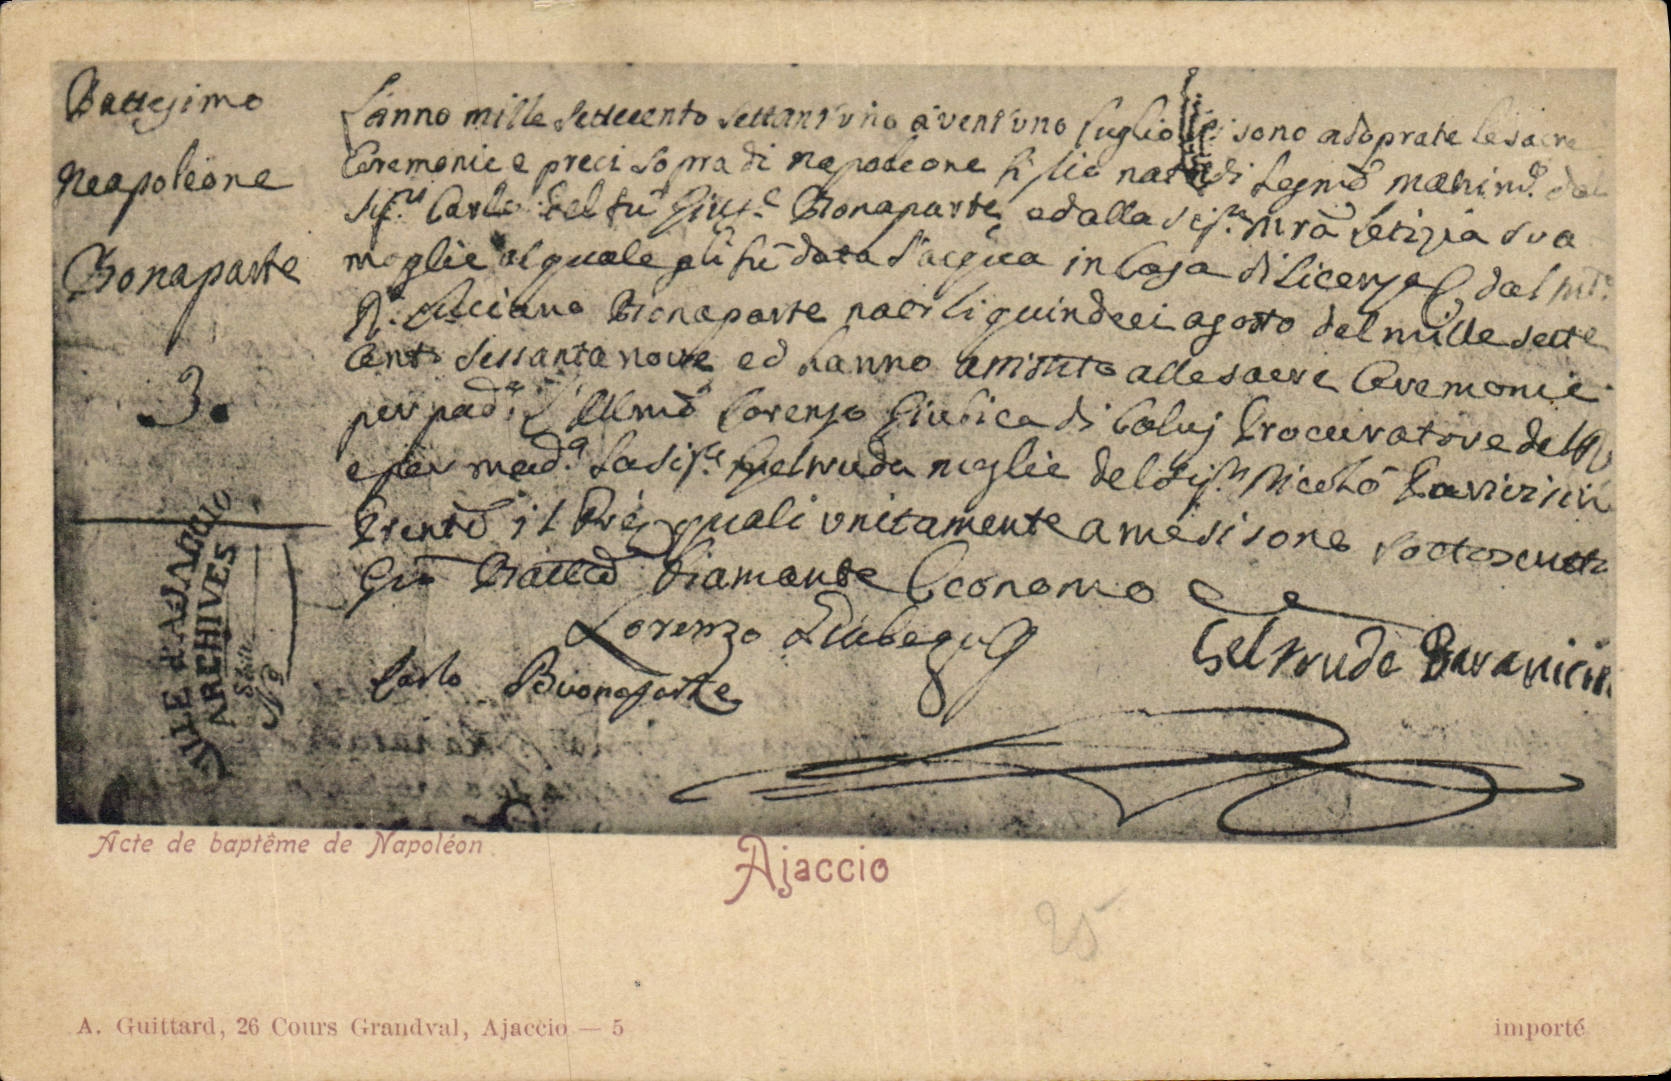 Battesimo
Neapoleone
Bonaparte
3.
L'anno mille settecento settant'uno a vent'uno luglio si sono adoprate le sacre
Ceremonie e preci sopra di Napoleone figlio nato di legmo matrimo. dal
Sigr. Carlo del fu Giuse. Bonaparte, ed alla Sigra. Mra Letizia sua
moglie al quale gli fu data l'acqua in Casa di licenza dal
Rdo. Luciano Bonaparte nato li quindeci agosto del mille sette
Cento sessanta nove ed hanno assistito alle sacre Ceremonie
per padno. l'Illmo Lorenzo Giubica di Calvi Procuratore del Re
e per madna. la Siga. Geltruda moglie del Sigr. Nicolò
Presente il Pre, quali unitamente a me si sono sottoscritti
Gio Batta Diamante Economo
Lorenzo Giubega
Geltruda
Carlo Buonaparte
VILLE d'AJACCIO
ARCHIVES
Série
No 9
Acte de baptême de Napoléon
Ajaccio
25
A. Guittard, 26 Cours Grandval, Ajaccio — 5
importé